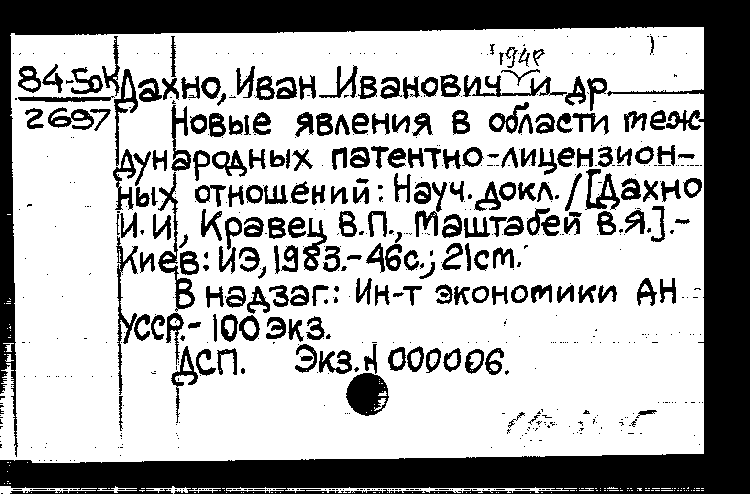 1948
84-50К Дахно, Иван Иванович и др.
2697 Новые явления в области меж-
дународных патентно-лицензион-
ных отношений: Науч. докл. / [Дахно
И. И., Кравец В.П., Маштабей В.Я.].-
Киев: ИЭ, 1983.- 46с.; 21см.
В надзаг.: Ин-т экономики АН
УССР.- 100 экз.
ДСП. Экз. № 000006.